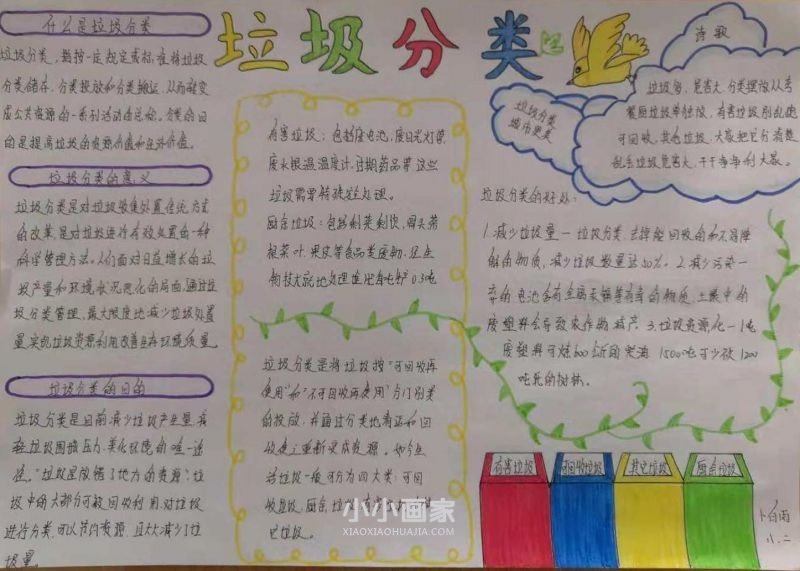 垃圾分类
什么是垃圾分类
垃圾分类,指按一定规定或标准将垃圾
分类储存、分类投放和分类搬运,从而转变
成公共资源的一系列活动的总称。分类的目
的是提高垃圾的资源价值和经济价值。
垃圾分类的意义
垃圾分类是对垃圾收集处置传统方式
的改革,是对垃圾进行有效处置的一种
科学管理方法。人们面对日益增长的垃
圾产量和环境状况恶化的局面,通过垃
圾分类管理,最大限度地减少垃圾处置
量,实现垃圾资源利用改善生存环境质量。
垃圾分类的目的
垃圾分类是目前减少垃圾产生量,减
轻垃圾围城压力,美化环境的唯一途
径。"垃圾是放错了地方的资源",垃
圾中的大部分可被回收利用,对垃圾
进行分类,可以节约资源,且大大减少了垃
圾量。
有害垃圾:包括废电池,废日光灯管,
废水银温温度计,过期药品等,这些
垃圾需要特殊安全处理。
厨余垃圾:包括剩菜剩饭,骨头菜
根菜叶、果皮等食品类废物,经生
物技术就地处理堆肥每吨产0.3吨
垃圾分类是将垃圾按"可回收再
使用"和"不可回收再使用"分门别类
的投放,并通过分类地清运和回
收使之重新变成资源。如今生
活垃圾一般可分为四大类:可回
收垃圾,厨余垃圾
垃圾。
诗歌
垃圾多,危害大,分类摆放从
餐厨垃圾单独放,有害垃圾别乱跑
可回收,其他垃圾,大家把它分清楚
乱丢垃圾危害大,干干净净利大家。
垃圾分类
城市更美
垃圾分类的好处:
1.减少垃圾量—垃圾分类,去掉能回收的和不易降
解的物质,减少垃圾数量达50%。2.减少污染—
弃的电池含有金属汞镉等有毒的物质,土壤中的
废塑料会导致农作物减产。3.垃圾资源化—1吨
废塑料可炼600公斤的柴油,1500吨可少砍1200
吨死的树林。
有害垃圾
可回收垃圾
其它垃圾
厨余垃圾
小小画家
XIAOXIAOHUAJIA.COM